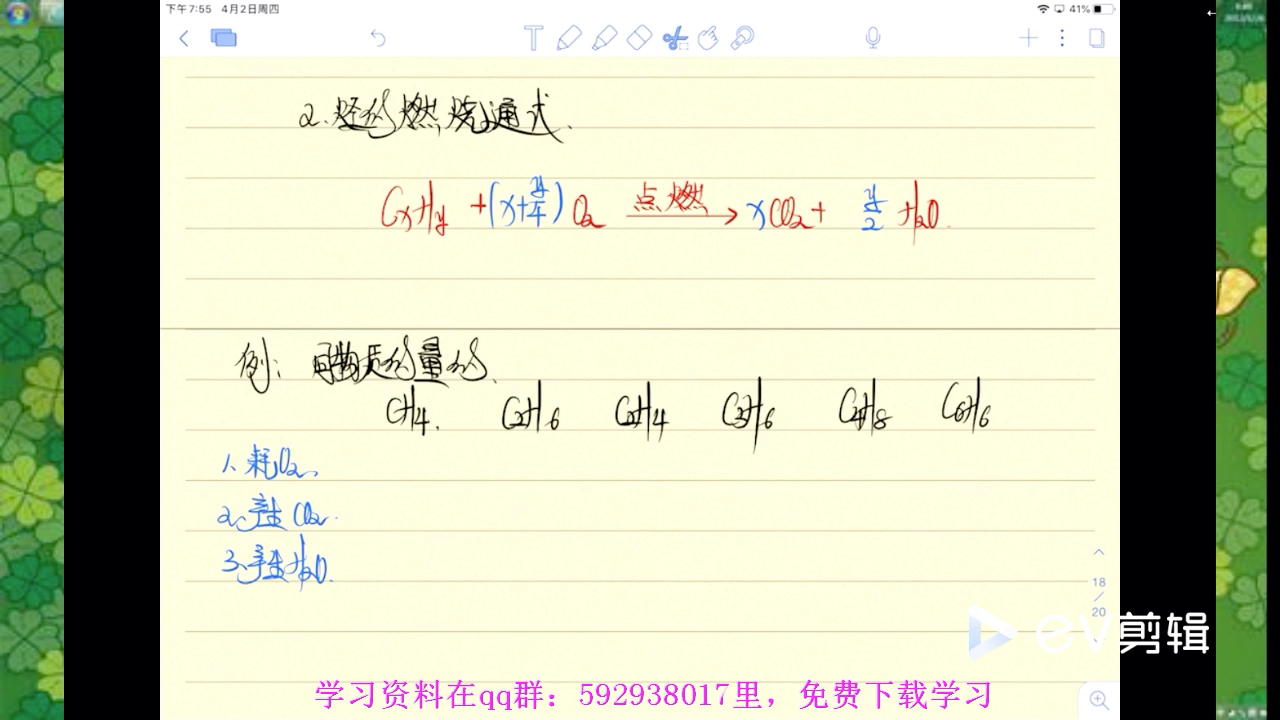 下午7:55 4月2日周四
41%
2.烃的燃烧通式.
CxHy + (x+y/4) O2 点燃→ xCO2 + y/2 H2O.
例: 同物质的量的.
CH4. C2H6 C2H4 C3H6 C4H8 C6H6
1、耗O2、
2、产生CO2.
3、产生H2O.
18
/
20
ev剪辑
学习资料在qq群：592938017里，免费下载学习